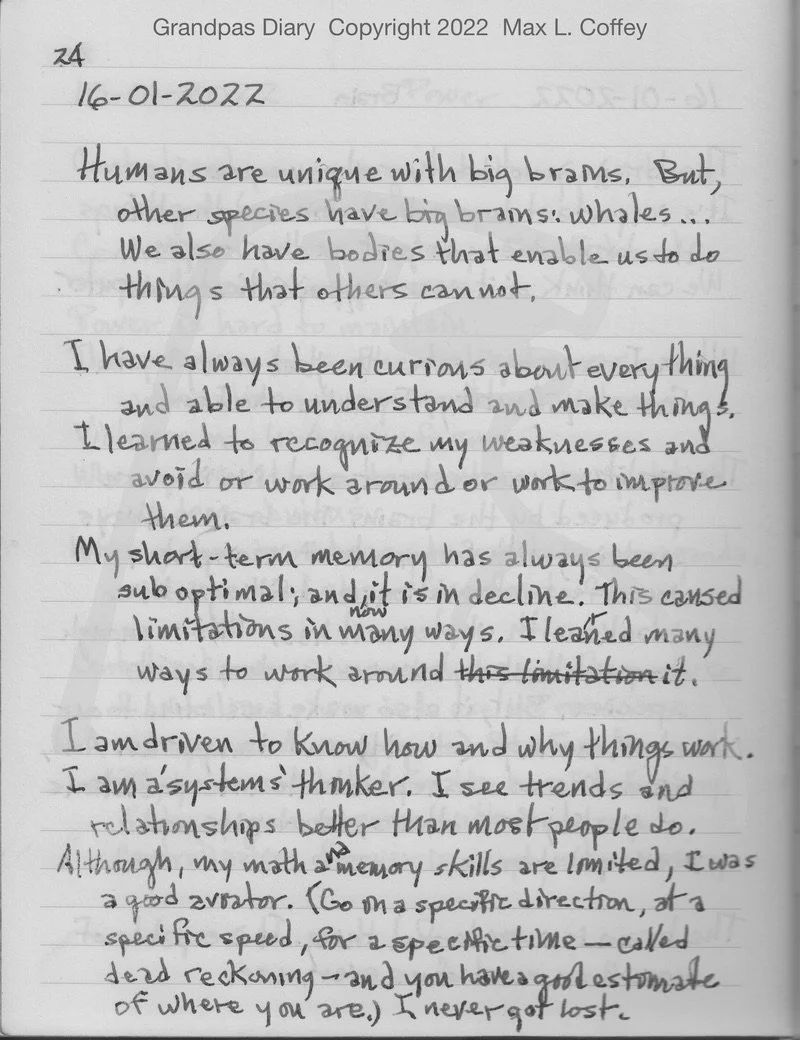 Grandpas Diary Copyright 2022 Max L. Coffey
24
16-01-2022
Humans are unique with big brains. But,
other species have big brains: whales...
We also have bodies that enable us to do
things that others cannot.
I have always been curious about everything
and able to understand and make things.
I learned to recognize my weaknesses and
avoid or work around or work to improve
them.
My short-term memory has always been
sub optimal; and, it is in decline. This caused
now
limitations in many ways. I learned many
ways to work around this limitation it.
I am driven to know how and why things work.
I am a 'systems' thinker. I see trends and
relationships better than most people do.
Although, my math and memory skills are limited, I was
a good aviator. (Go in a specific direction, at a
specific speed, for a specific time — called
dead reckoning — and you have a good estimate
of where you are.) I never got lost.